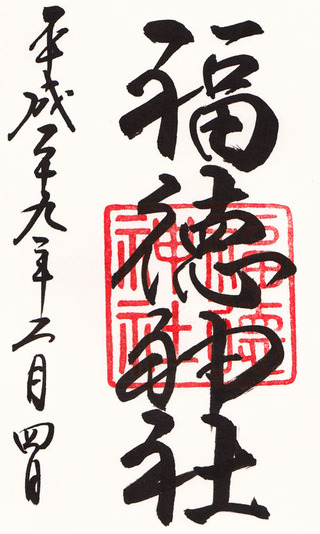 福徳神社
福徳神社
平成二十九年二月四日